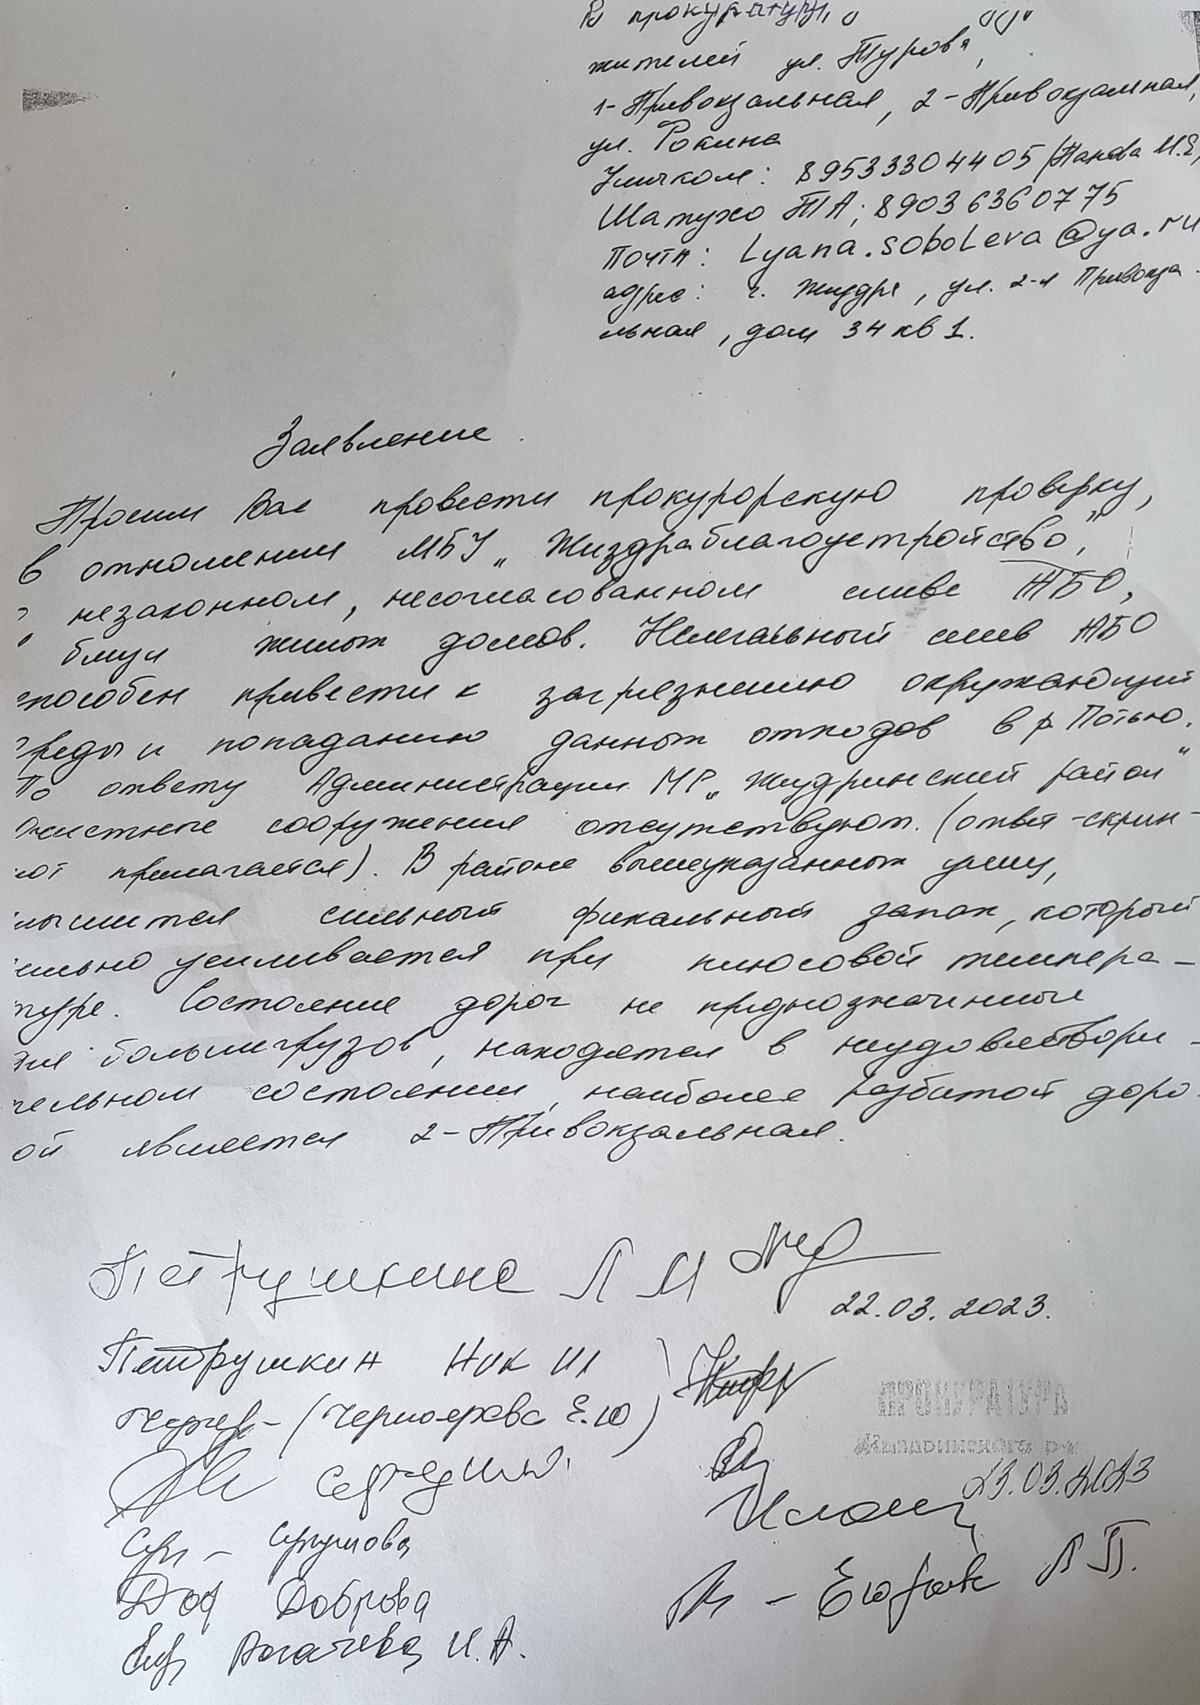 В прокуратуру
жителей ул. Турова,
1-Привокзальная, 2-Привокзальная,
ул. Фокина
Уличком: 89533304405 (Панова И.Е,
Шатухо ТА; 89036360775
Почта: Lyana.soboleva@ya.ru
адрес: г. Жиздра, ул. 2-я Привокза-
льная, дом 34 кв 1.
Заявление.
Просим Вас провести прокурорскую проверку,
в отношении МБУ „Жиздраблагоустройство",
незаконном, несогласованном сливе ЖБО,
близи жилых домов. Нелегальный слив ЖБО
способен привести к загрязнению окружающий
среды и попаданию данных отходов в р. Потью.
По ответу Администрации МР „Жиздринский район"
очистные сооружения отсутствуют. (ответ-скрин-
шот прилагается). В районе вышеуказанных улиц,
слышится сильный фикальный запах, который
сильно усиливается при плюсовой темпера-
туре. Состояние дорог не преднозначенные
для большегрузов, находятся в неудовлетвори-
тельном состоянии, наиболее разбитой доро-
гой является 2-Привокзальная.
Петрушкина Л И
22.03.2023.
Петрушкин Ник Ил
(Черноярова Е.Ю)
ПРОКУРАТУРА
Жиздринского р-на
23.03.2023
Доб Доброва
Рогачева И.А.
Л П.